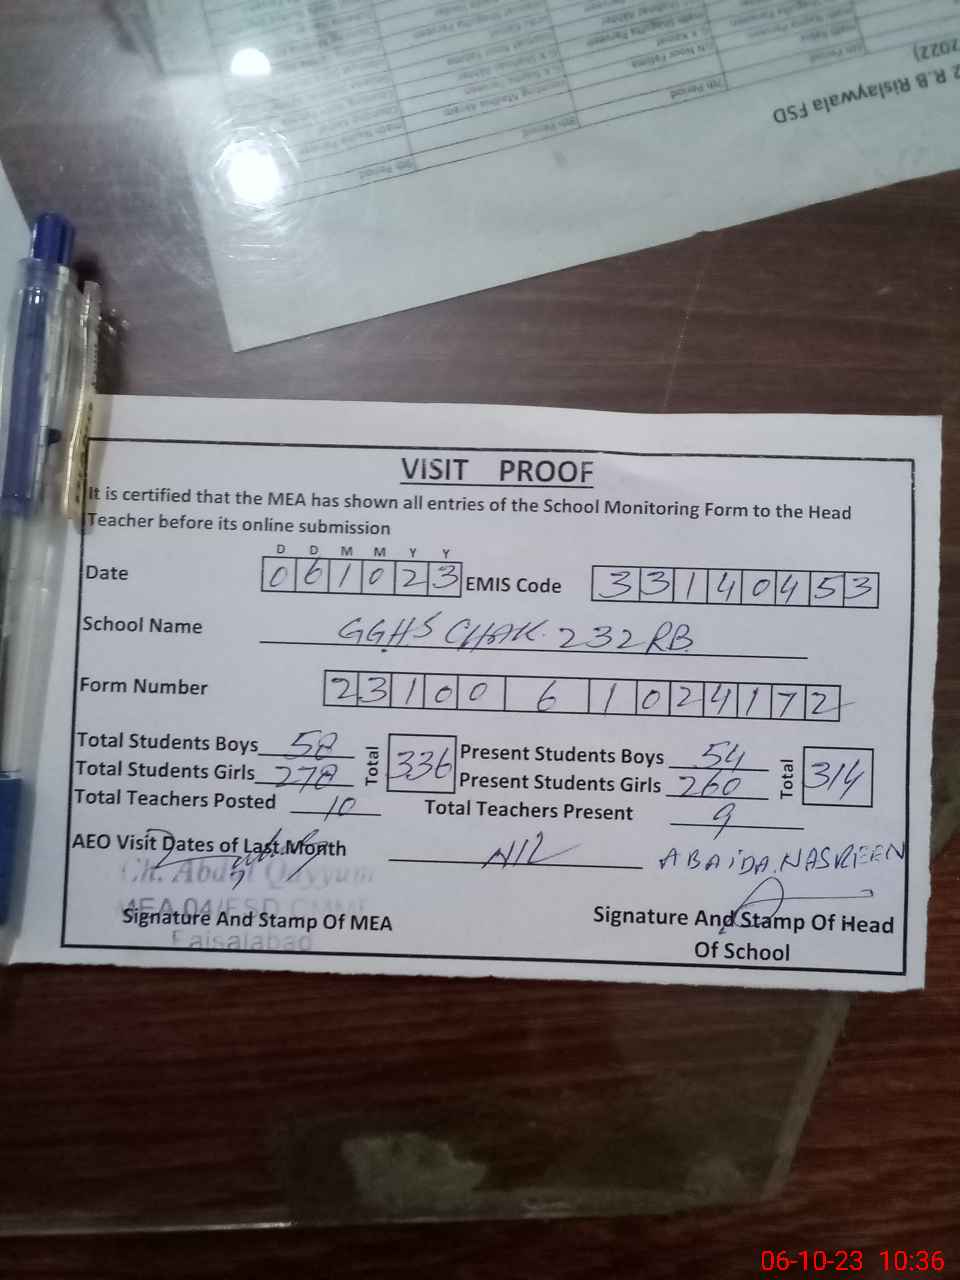 2022)
2 R.B Rislaywala FSD
VISIT PROOF
It is certified that the MEA has shown all entries of the School Monitoring Form to the Head
Teacher before its online submission
D D M M Y Y
Date 0 6 1 0 2 3 EMIS Code 3 3 1 4 0 4 5 3
School Name GGHS CHAK. 232 RB.
Form Number 2 3 1 0 0 6 1 0 2 4 1 7 2
Total Students Boys 58 Total 336 Present Students Boys 54 Total 314
Total Students Girls 278 Present Students Girls 260
Total Teachers Posted 10 Total Teachers Present 9
AEO Visit Dates of Last Month NIL ABAIDA.NASREEN
Ch. Abdul Qayyum
MEA 04/FSD CMMF
Signature And Stamp Of MEA Signature And Stamp Of Head
Faisalabad Of School
06-10-23 10:36